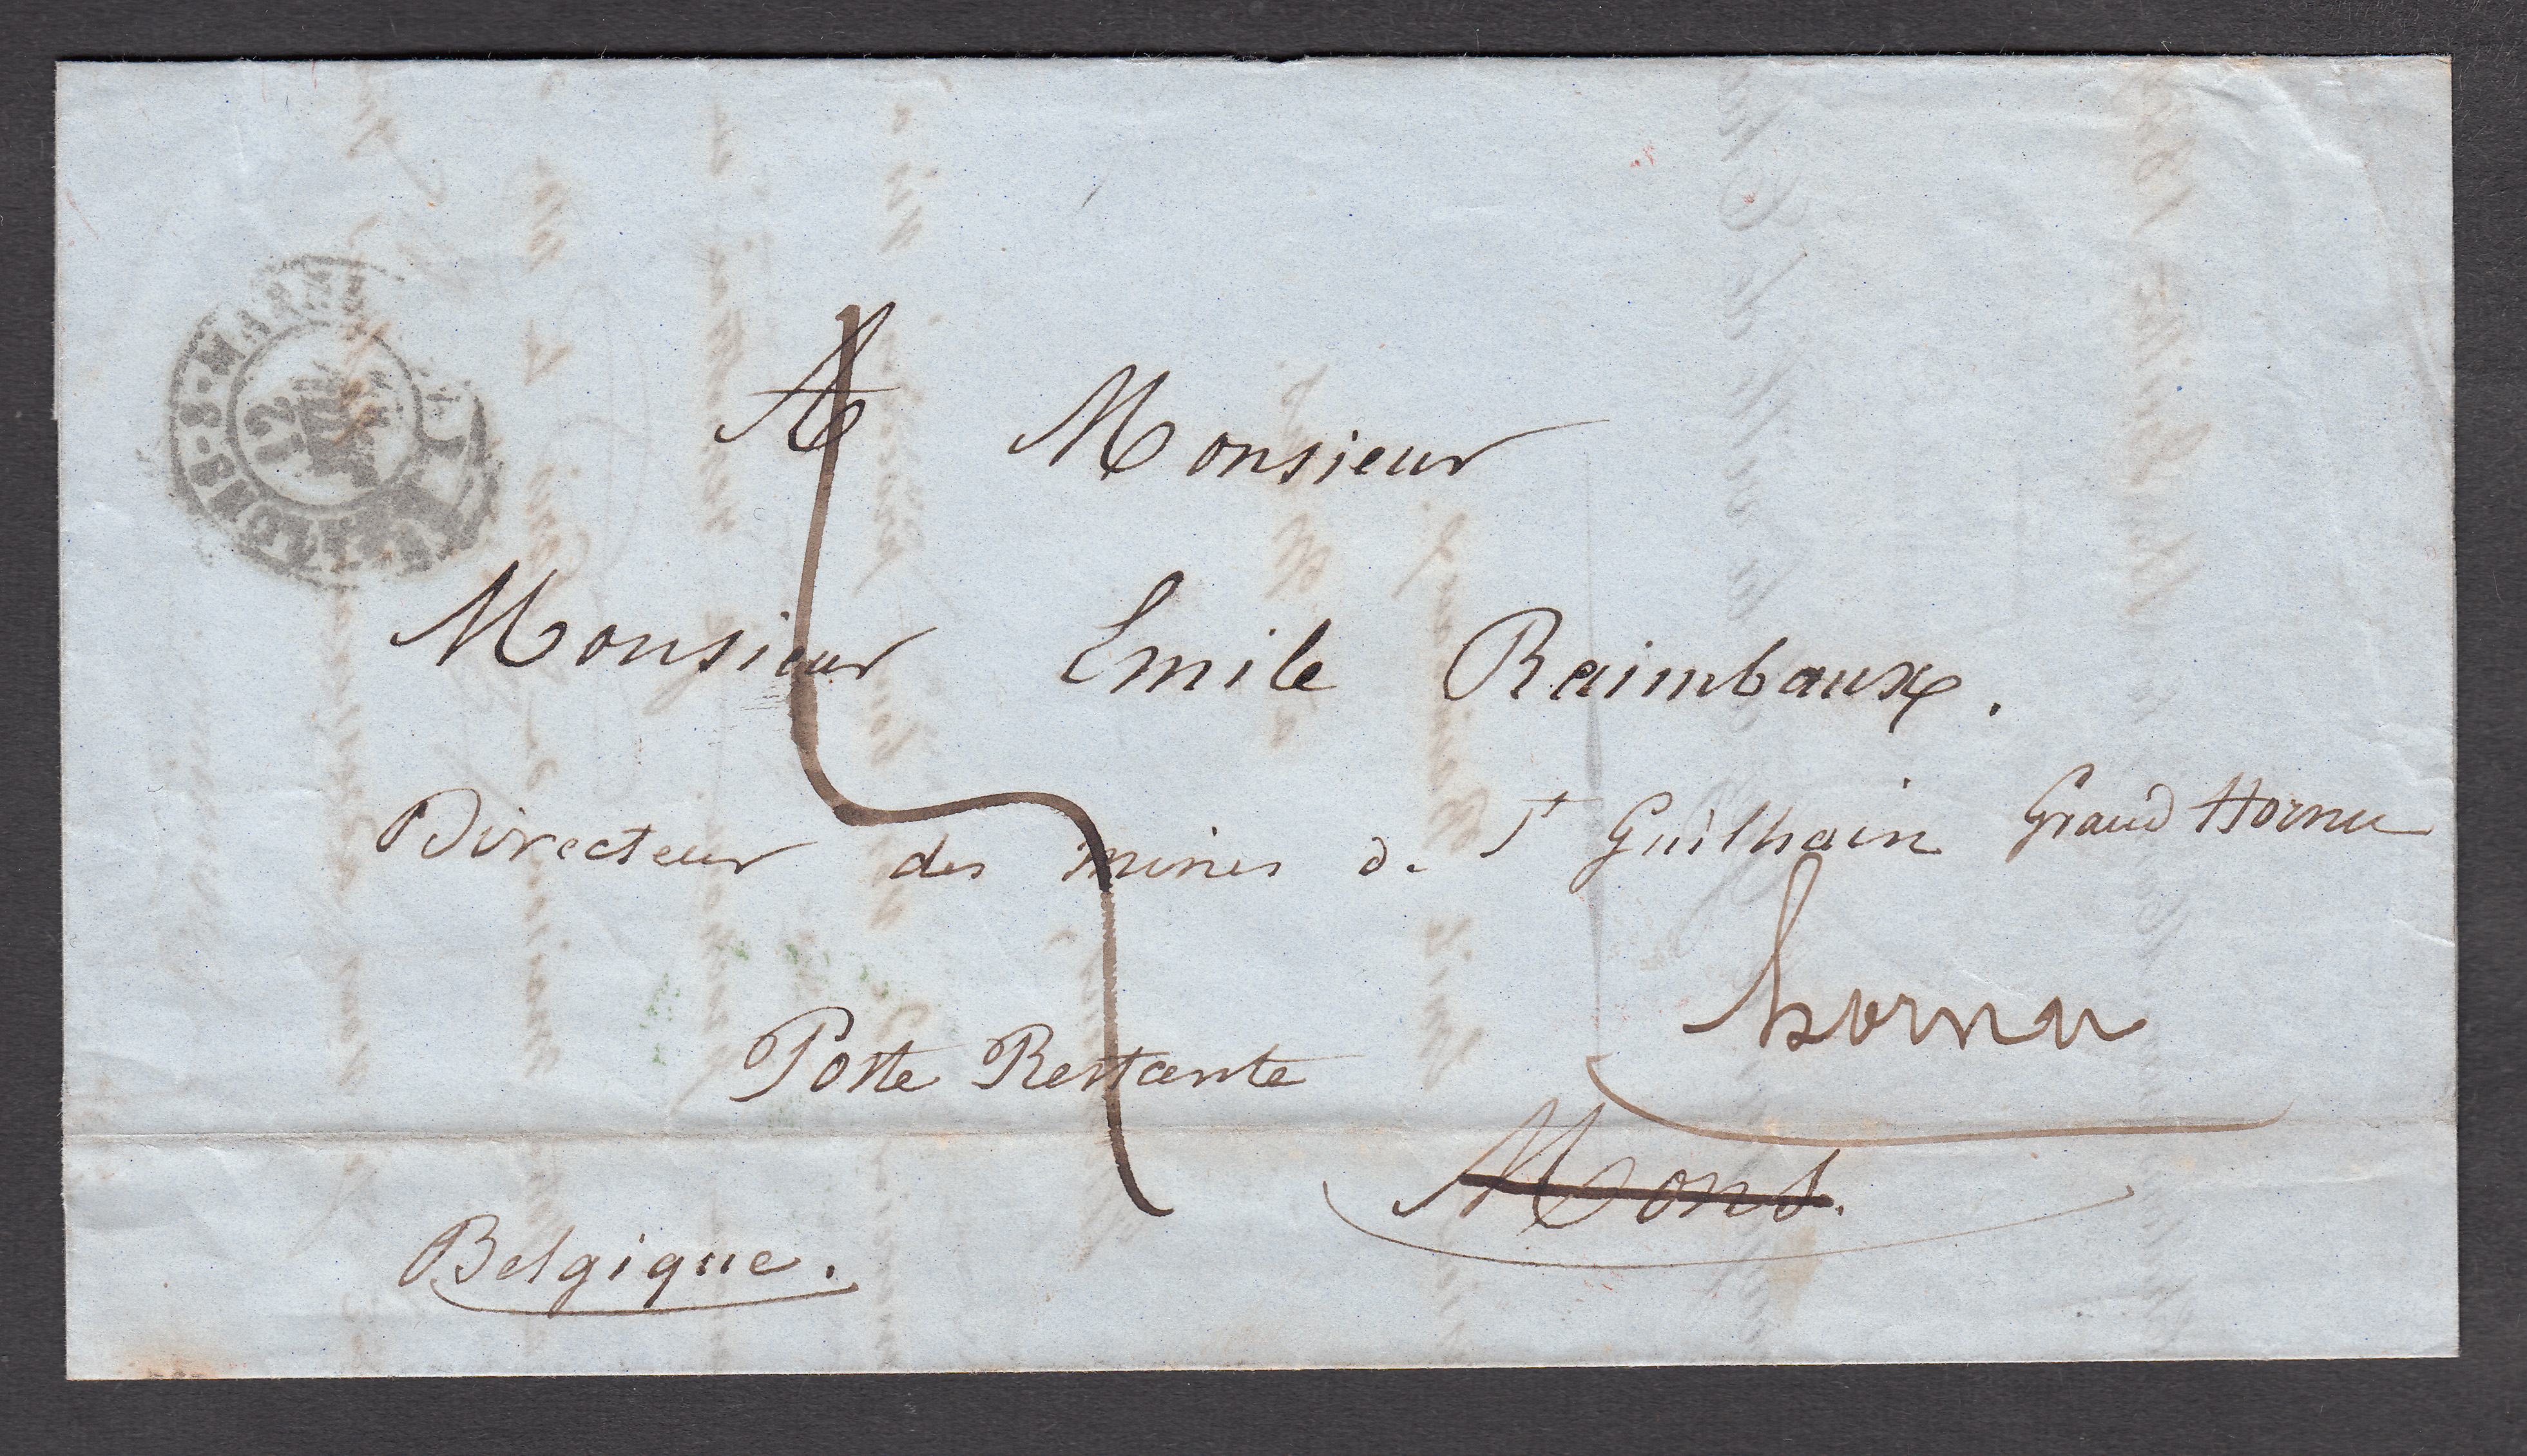 A Monsieur
Monsieur Emile Raimbaux.
Directeur des mines de St Guilhain Grand Hornu
hornu
Poste Restante
Mons.
Belgique.
CHALONS-S-MARNE
12